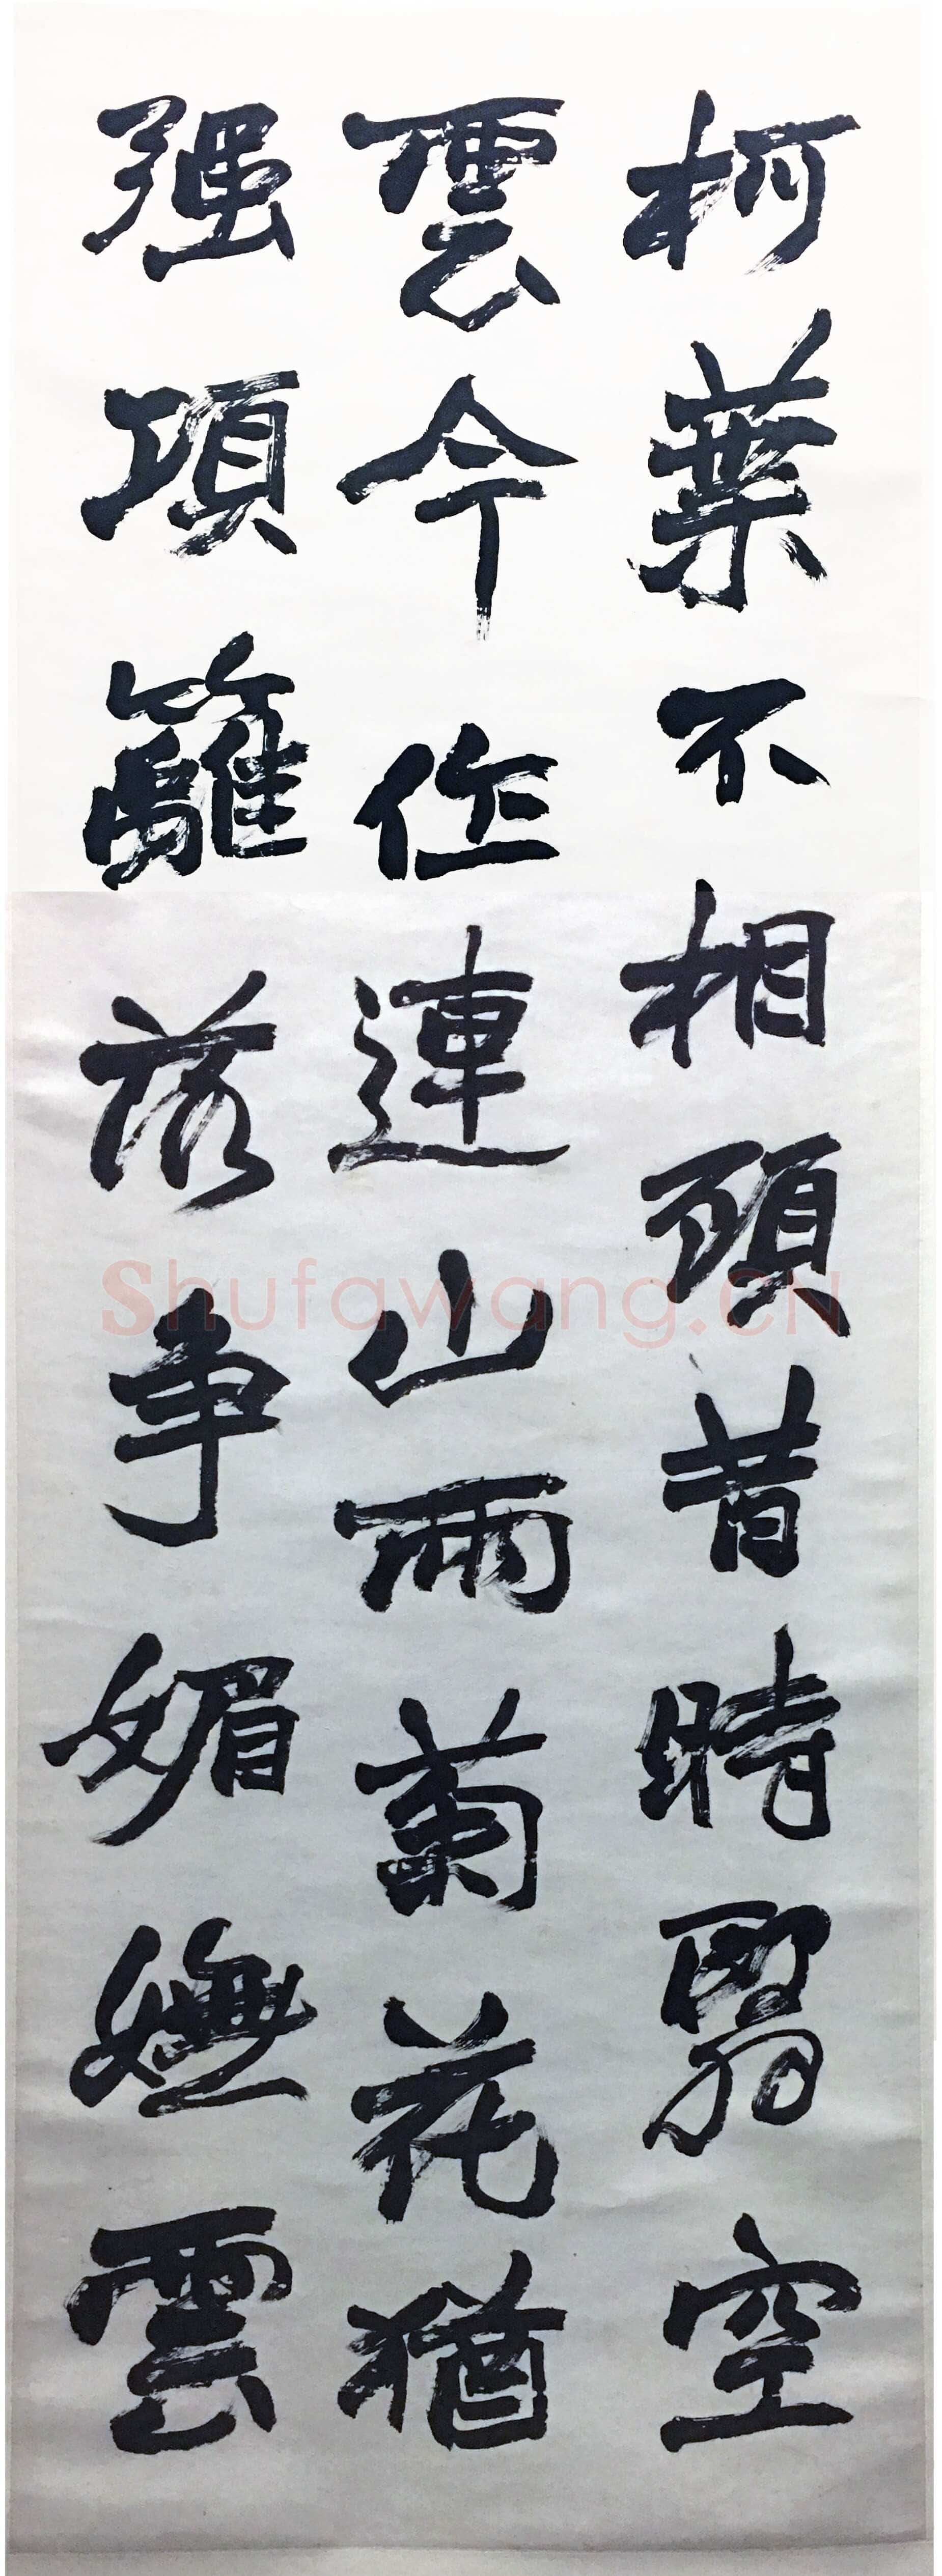 柯葉不相頭昔時翳空
雲今作連山雨菊花猶
强項籬落争媚嫵雲
Shufawang.CN